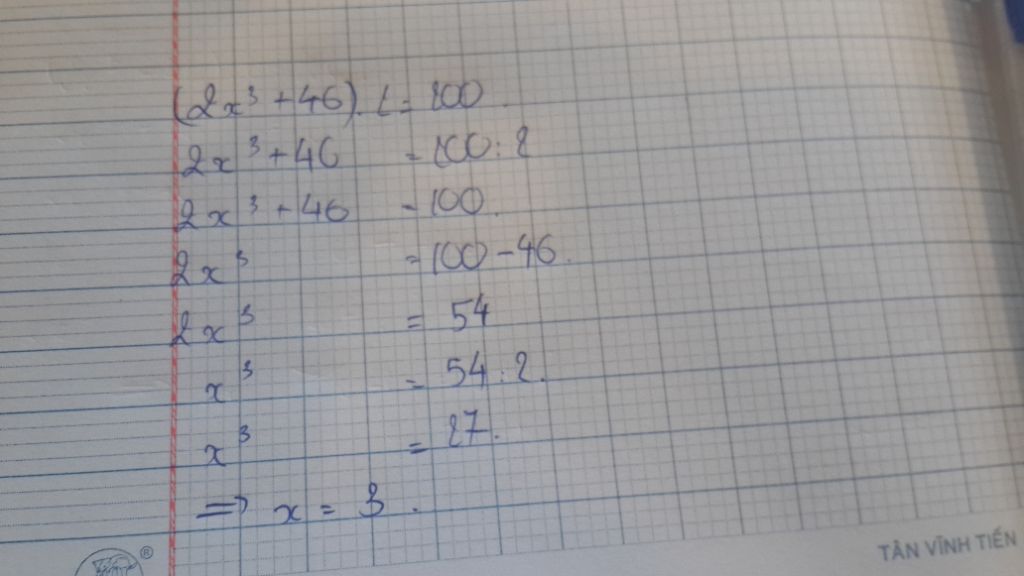 (2x³ + 46) . 1 = 100.
2x³ + 46 = 100 : 1
2x³ + 46 = 100.
2x³ = 100 - 46.
2x³ = 54
x³ = 54 : 2.
x³ = 27.
=> x = 3.
®
TÂN VĨNH TIẾN